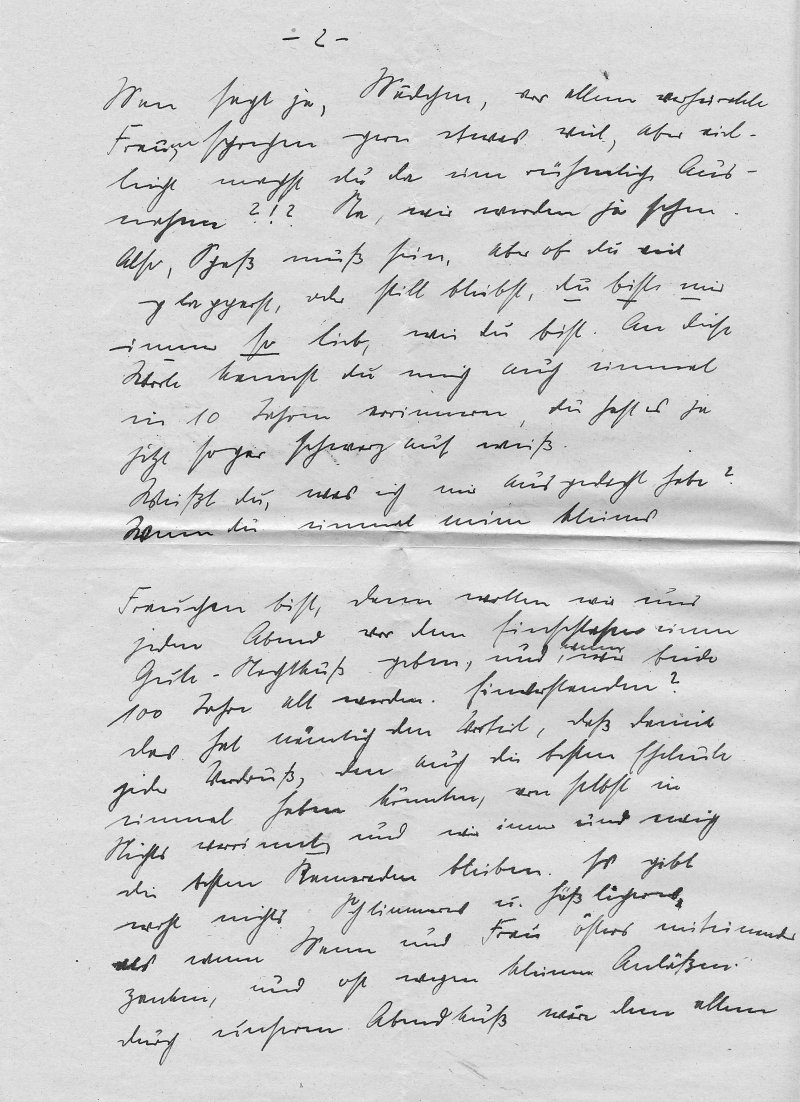 - 2 -
Man sagt ja, Mädchen, vor allem verheiratete
Frauen sprechen gern etwas viel, aber viel-
leicht machst du da eine rühmliche Aus-
nahme ?!? Na, wir werden ja sehen.
Also, Spaß muß sein, aber ob du viel
plapperst, oder still bleibst, du bist mir
immer so lieb, wie du bist. An diese
Worte kannst du mich auch einmal
in 10 Jahren erinnern, du hast es ja
jetzt sogar schwarz auf weiß.
Weißt du, was ich mir ausgedacht habe?
Wenn du einmal mein kleines
Frauchen bist, dann wollen wir uns
jeden Abend vor dem Einschlafen einen
Gute-Nachtkuß geben, und, wenn wir beide
100 Jahre alt werden. Einverstanden?
das hat nämlich den Vorteil, daß damit
jeder Verdruß, den auch die besten Eheleute
einmal haben könnten, von selbst in
Nichts verrinnt, und wir immer und ewig
die besten Kameraden bleiben. Es gibt
wohl nichts Schlimmeres u. häßlicheres,
als wenn Mann und Frau öfters miteinander
zanken, und oft wegen kleinen Anläßen.
durch unseren Abendkuß wäre dem allem